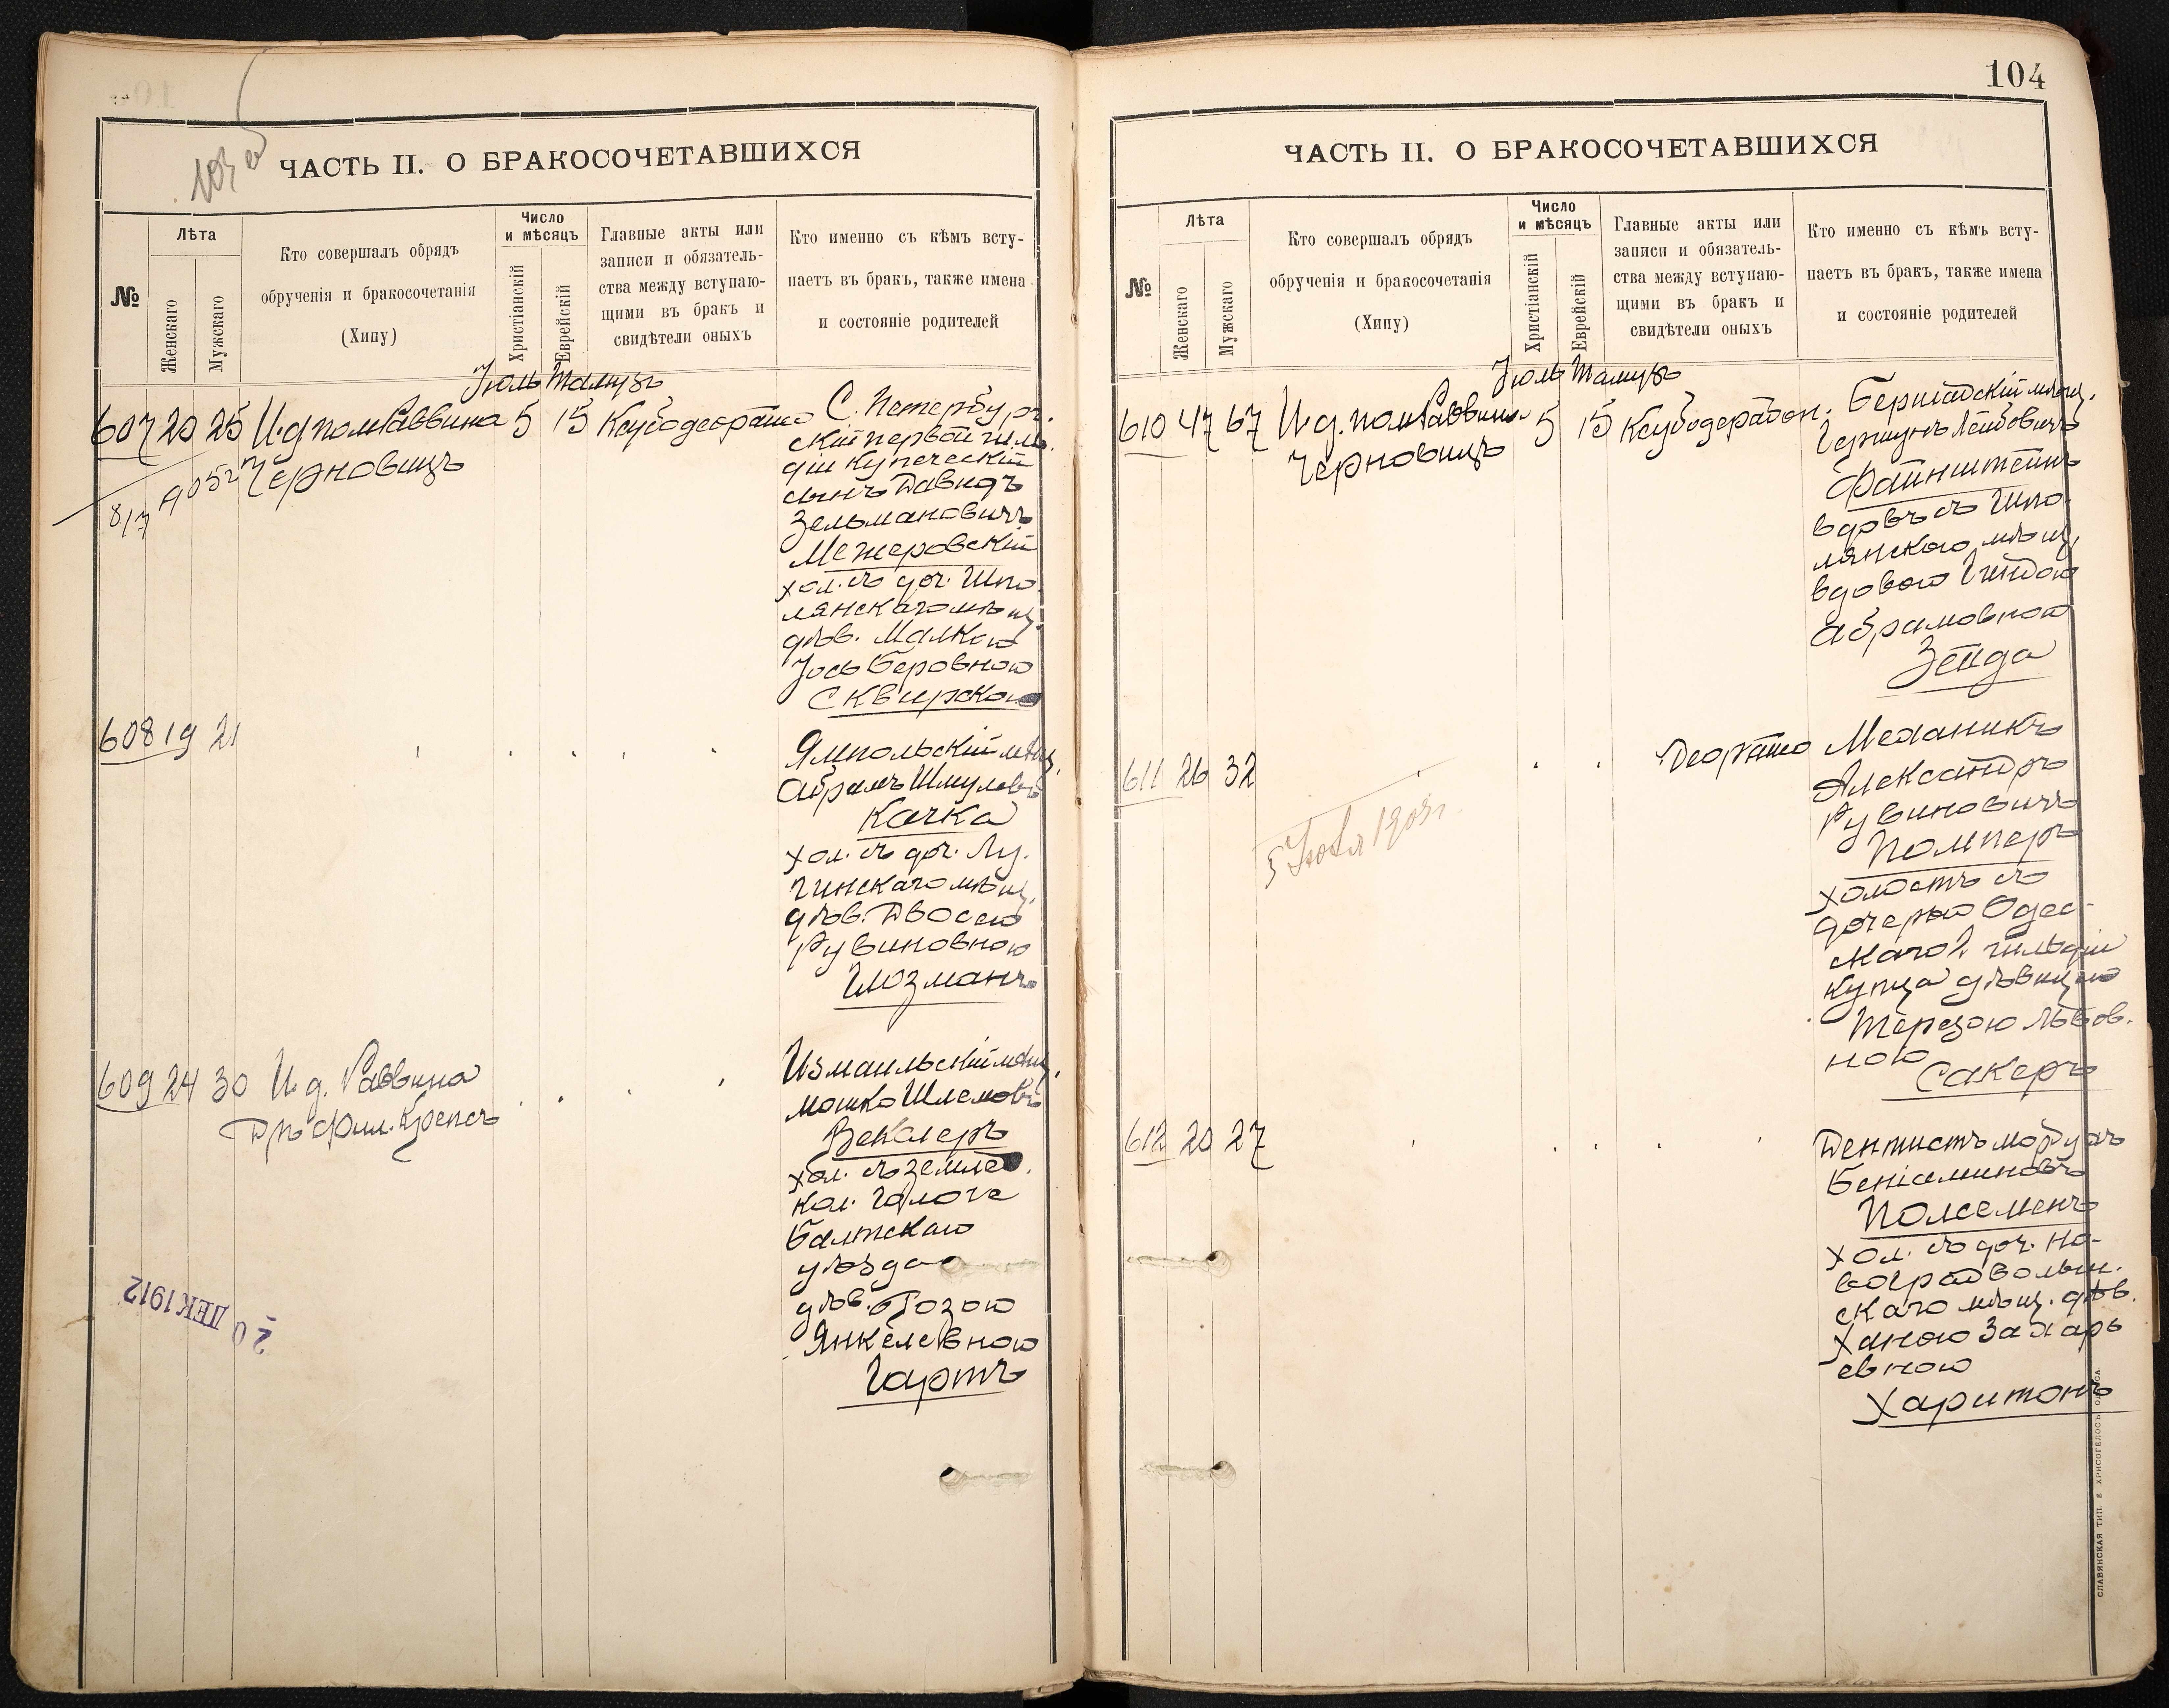 103 об
ЧАСТЬ II. О БРАКОСОЧЕТАВШИХСЯ
№
Лѣта
Женскаго
Мужскаго
Кто совершалъ обрядъ
обрученія и бракосочетанія
(Хипу)
Число
и мѣсяцъ
Христіанскій
Еврейскій
Главные акты или
записи и обязатель-
ства между вступаю-
щими въ бракъ и
свидѣтели оныхъ
Кто именно съ кѣмъ всту-
паетъ въ бракъ, также имена
и состояніе родителей
Іюль Тамузъ
607 20 25 И. д. пом. Раввина 5 15
Черновицъ
С. Петербург-
скій первой гиль-
діи купеческій
сынъ Давидъ
Зельмановичъ
Межеровскій
хол. съ доч. Шпо-
лянскаго мѣщ.
дѣв. Малкою
Іось Беровною
Сквирскою
608 19 21
Ямпольскій мѣщ.
Абрамъ Шмулевъ
Качка
хол. съ доч. Лу-
гинскаго мѣщ.
дѣв. Двосею
Рувиновною
Глюзманъ
609 24 30 И. д. Раввина
Дръ Фил. Крепсъ
Измаильскій мѣщ.
Мошко Шлемовъ
Векслеръ
хол. съ землед.
кол.
Балтскаго
уѣзда
дѣв. Розою
Янкелевною
Гартъ
20 ДЕК 1912
104
ЧАСТЬ II. О БРАКОСОЧЕТАВШИХСЯ
№
Лѣта
Женскаго
Мужскаго
Кто совершалъ обрядъ
обрученія и бракосочетанія
(Хипу)
Число
и мѣсяцъ
Христіанскій
Еврейскій
Главные акты или
записи и обязатель-
ства между вступаю-
щими въ бракъ и
свидѣтели оныхъ
Кто именно съ кѣмъ всту-
паетъ въ бракъ, также имена
и состояніе родителей
Іюль Тамузъ
610 47 67 И. д. пом. Раввина 5 15
Черновицъ
Бершадскій мѣщ.
Гершунъ Лейбовичъ
Файнштейнъ
вдовъ съ Шпо-
лянскою мѣщ.
вдовою Гитлою
Абрамовною
Зейда
611 26 32
5 Іюля 1905 г.
Механикъ
Александръ
Рувиновичъ
Помперъ
холостъ съ
дочерью Одес-
скаго 2 гильдіи
купца дѣвицею
Терезою Львов-
ною
Сакеръ
612 20 27
Дентистъ Мордухъ
Беніаминовъ
Полсеменъ
хол. съ доч. Но-
воградволын-
скаго мѣщ. дѣв.
Ханою Захарь
евною
Харитонъ
СЛАВЯНСКАЯ ТИП. Е. ХРИСОГЕЛОСЪ ОДЕССА